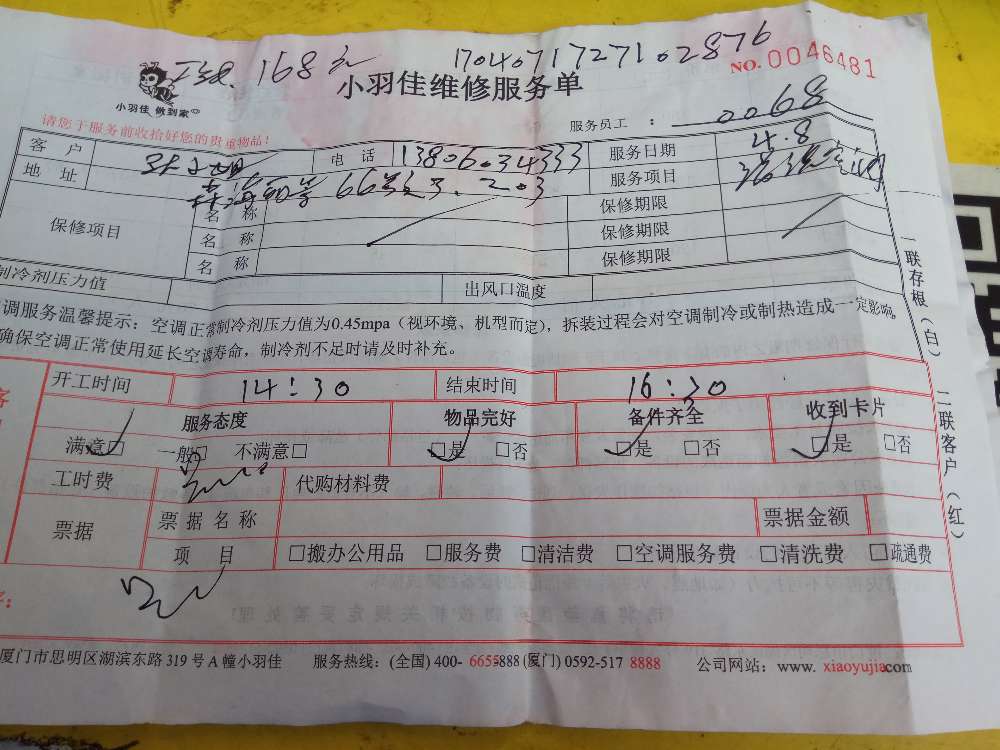 168元 1704071727102876
NO.0046481
小羽佳 做到家
小羽佳维修服务单
请您于服务前收拾好您的贵重物品!
服务员工 : 0068
客户 电话 13806034333 服务日期 4.8
地址 66号之3.203 服务项目
保修项目 名称 保修期限
名称 保修期限
名称 保修期限
制冷剂压力值 出风口温度
调服务温馨提示:空调正常制冷剂压力值为0.45mpa(视环境、机型而定),拆装过程会对空调制冷或制热造成一定影响。
确保空调正常使用延长空调寿命,制冷剂不足时请及时补充。
开工时间 14:30 结束时间 16:30
服务态度 物品完好 备件齐全 收到卡片
满意□ 一般□ 不满意□ □是 □否 □是 □否 □是 □否
工时费 代购材料费
票据 票据名称 票据金额
项目 □搬办公用品 □服务费 □清洁费 □空调服务费 □清洗费 □疏通费
厦门市思明区湖滨东路319号A幢小羽佳 服务热线:(全国)400-6655888(厦门)0592-5178888 公司网站:www.xiaoyujia.com
一联存根(白) 二联客户(红)